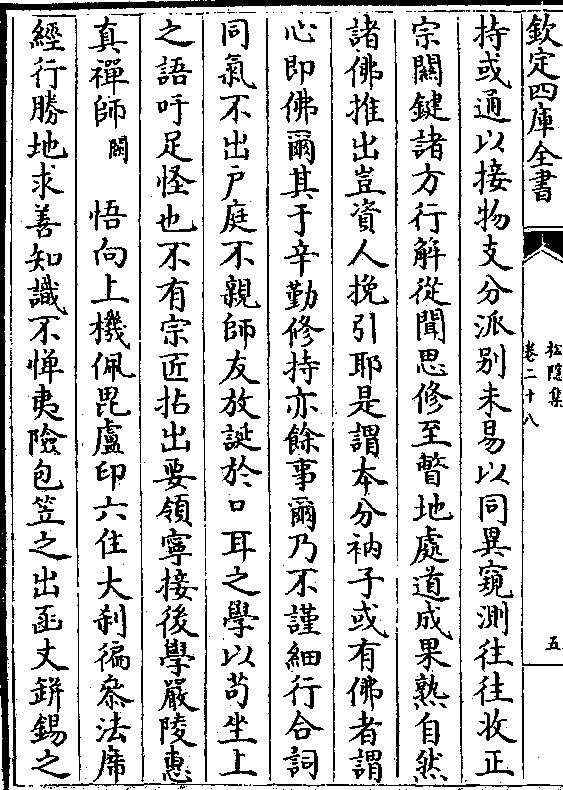 欽定四庫全書
松隱集
卷二十八
五
持或通以接物支分派别未易以同異窺測往往收正
宗關鍵諸方行解從聞思修至瞥地處道成果熟自然
諸佛推出豈資人挽引耶是謂本分衲子或有佛者謂
心即佛爾其于辛勤修持亦餘事爾乃不謹細行合詞
同氣不出户庭不親師友放誕於口耳之學以苟坐上
之語吁足怪也不有宗匠拈出要領寧接後學嚴陵惠
真禪師闕悟向上機佩毘盧印六住大刹徧叅法席
經行勝地求善知識不憚夷險包笠之出函丈鉼錫之